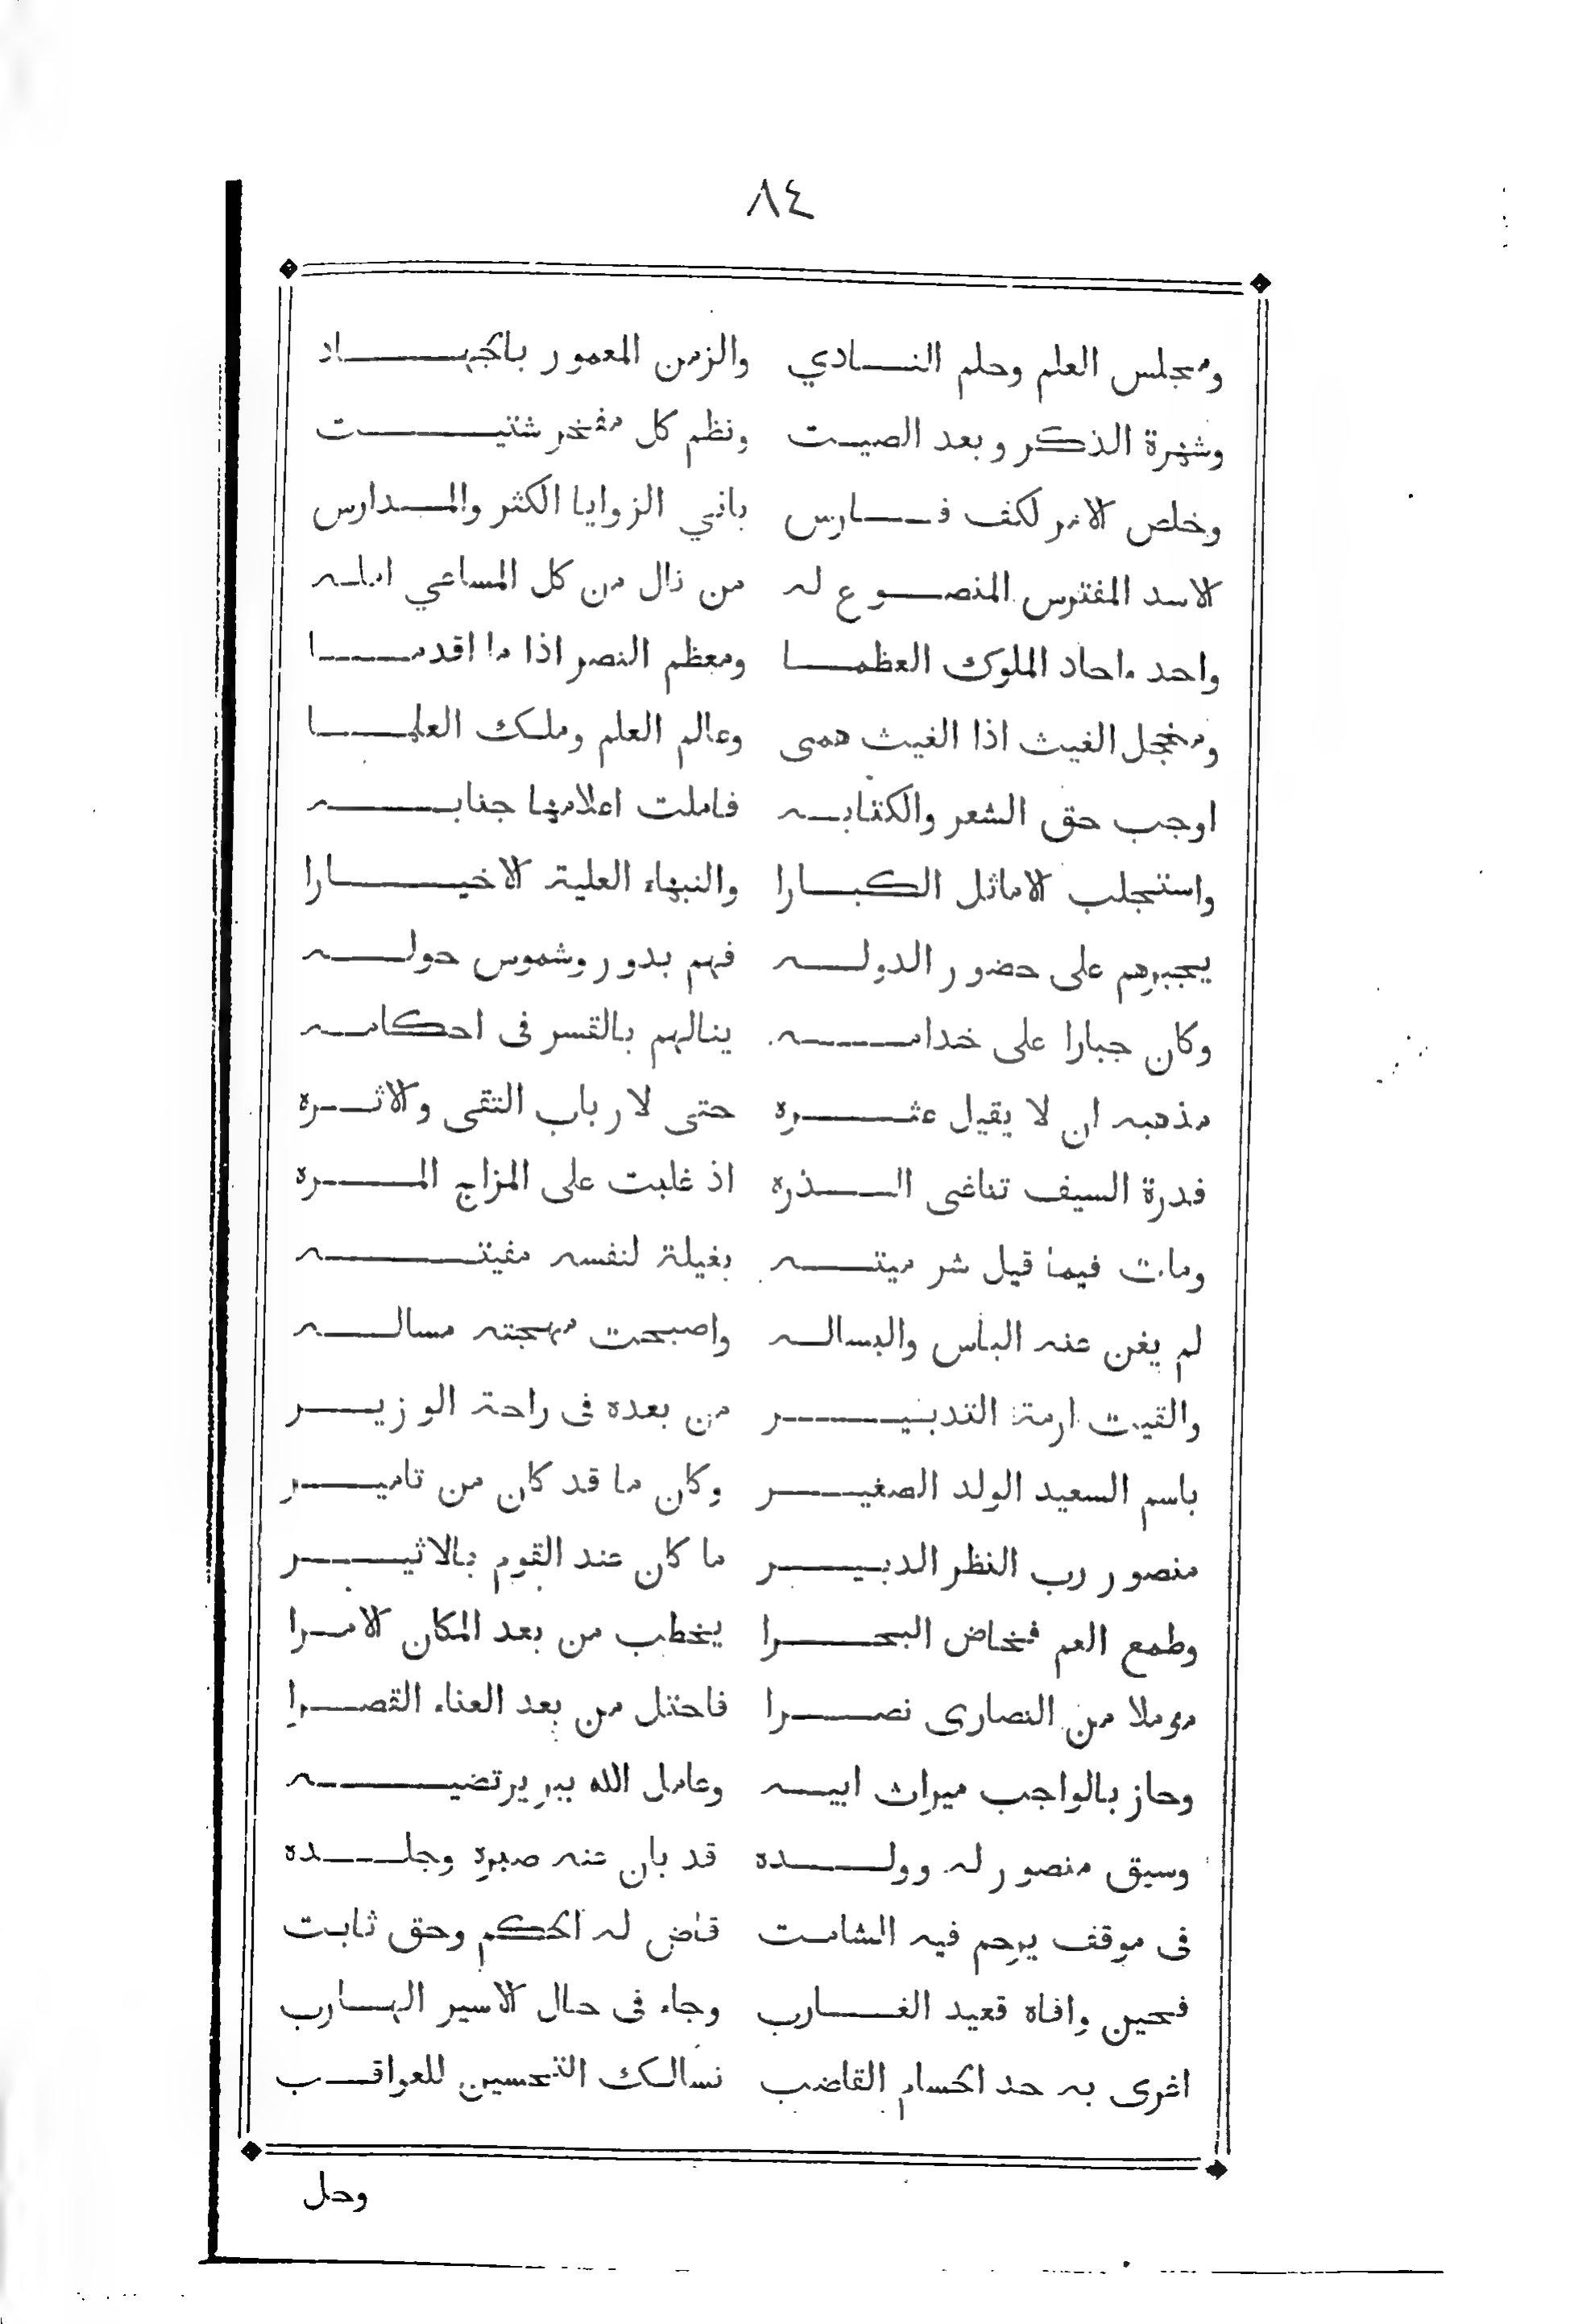 ٨٤
ومجلس العلم وحلم النادي والزمن المعمور بالجهاد
وشهرة الذكر وبعد الصيت ونظم كل مفخر شتيت
وخلص الامر لكف فارس باني الزوايا الكثر والمدارس
الاسد المفترس المنصوع له من نال من كل المساعي امله
واحد ءاحاد الملوك العظما ومعظم النصر اذا ما اقدما
ومخجل الغيث اذا الغيث همى وعالم العلم وملك العلما
اوجب حق الشعر والكتابه فاملت اعلامها جنابه
واستجلب الاماثل الكبارا والنبهاء العلية الاخيارا
يجبرهم على حضور الدوله فهم بدور وشموس حوله
وكان جبارا على خدامه ينالهم بالقسر فى احكامه
مذهبه ان لا يقيل عثره حتى لارباب التقى والاثره
فدرة السيف تناغى الذره اذ غلبت على المزاج المره
ومات فيما قيل شر ميته بغيلة لنفسه مفيته
لم يغن عنه البأس والبساله واصبحت مهجته مساله
والقيت ازمة التدبير من بعده فى راحة الوزير
باسم السعيد الولد الصغير وكان ما قد كان من تامير
منصور رب النظر الدبير ما كان عند القوم بالاثير
وطمع العم فخاض البحرا يخطب من بعد المكان الامرا
موملا من النصارى نصرا فاحتل من بعد العناء القصرا
وحاز بالواجب ميراث ابيه وعامل الله ببر يرتضيه
وسيق منصور له وولده قد بان عنه صبره وجلده
فى موقف يرحم فيه الشامت قاض له الحكم وحق ثابت
فحين وافاه قعيد الغارب وجاء فى حال الاسير الهارب
اغرى به حد الحسام القاضب نسالك التحسين للعواقب
وحل